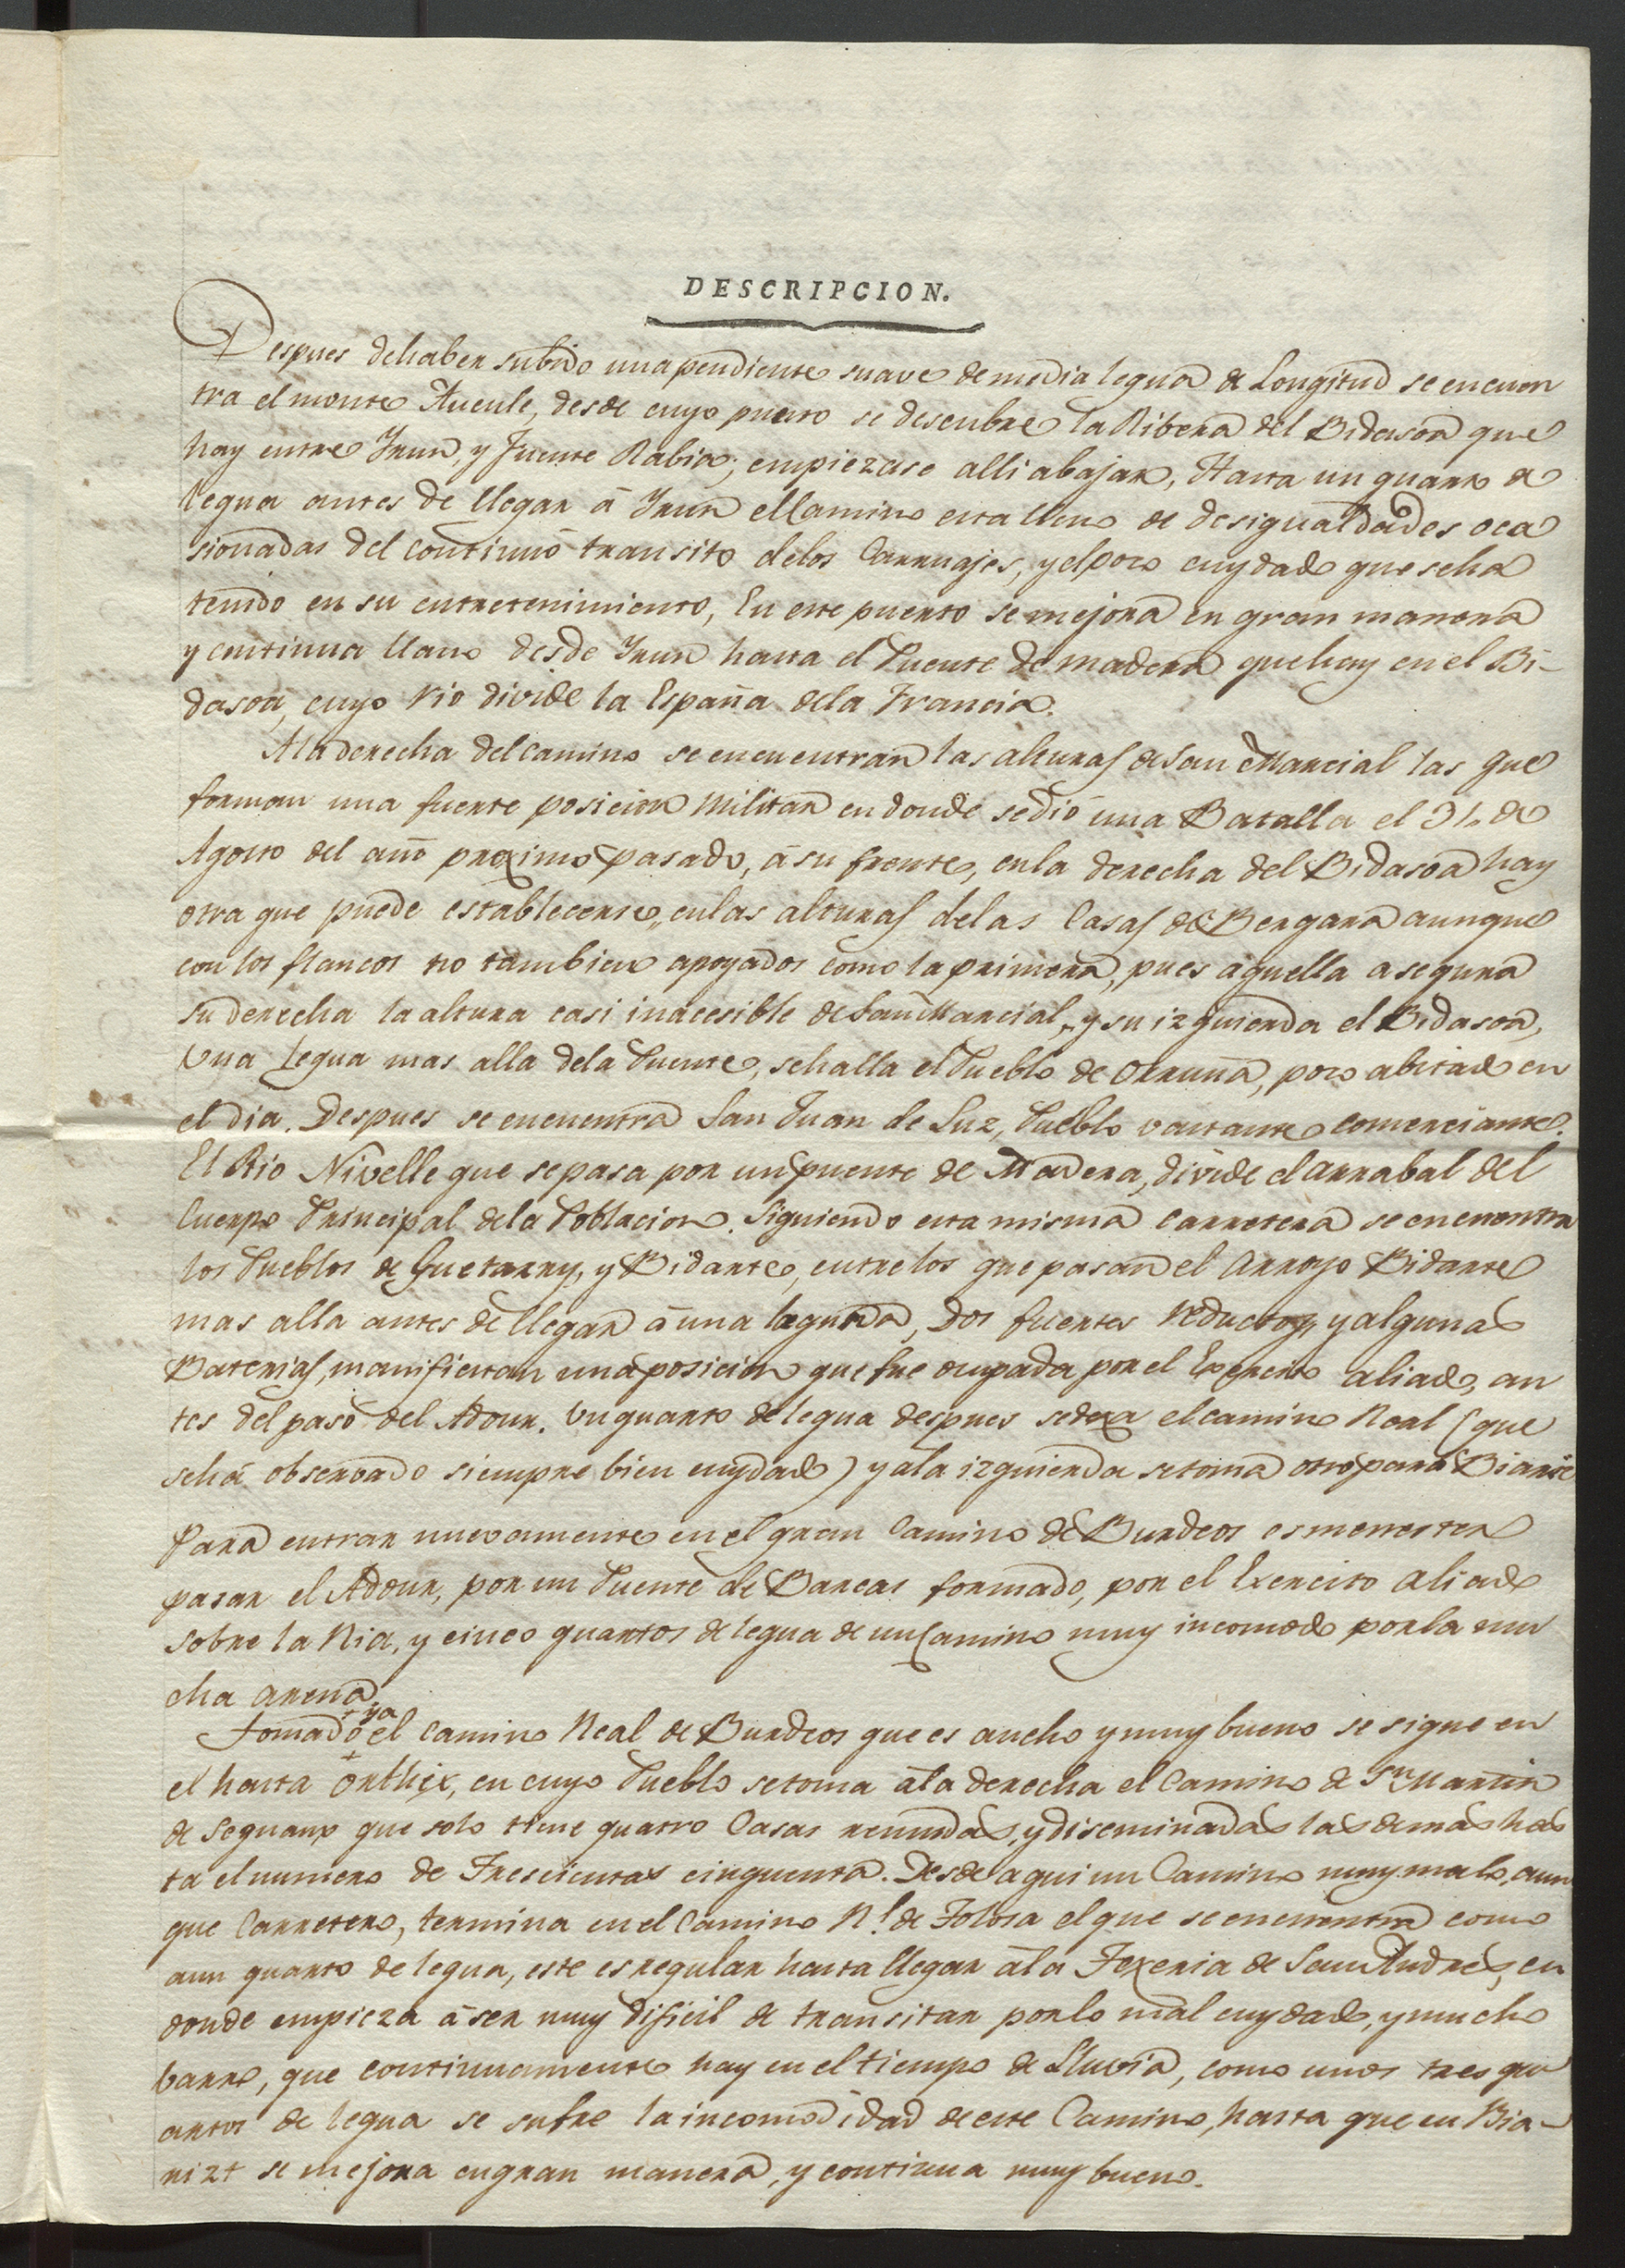 DESCRIPCION.
Despues de haber subido una pendiente suave de media legua de Longitud se encuen
tra el monte Aucule, desde cuyo puerto se descubre la Ribera del Bidasoa que
hay entre Yrun, y Fuente Rabia; empiezase alli abajar, Hasta un quarto de
legua antes de llegar á Yrun el Camino esta lleno de desigualdades oca
sionadas del continuo transito delos Carruajes, y el poco cuydado que seha
tenido en su entretenimiento, En este puerto se mejora en gran manera
y continua llano desde Yrun hasta el Puente de madera que hay en el Bi-
dasoa, cuyo rio divide la España dela Francia.
Ala derecha del camino se encuentran las alturas de San Marcial las que
forman una fuerte posicion Militar en donde sedió una Batalla el 31. de
Agosto del año proximo pasado, á su frente, en la derecha del Bidasoa hay
otra que puede establecerse, en las alturas delas Casas de Bergara aunque
con los flancos no tambien apoyados como la primera, pues aquella asegura
su derecha la altura casi inaccesible de San Marcial, y su izquierda el Bidasoa,
Una Legua mas alla dela Puente, sehalla el Pueblo de Orruña, poco abitado en
el dia. Despues se encuentra San Juan de Luz, Pueblo vastante comerciante.
El Rio Nivelle que se pasa por un puente de Madera, divide el arrabal del
Cuerpo Principal dela Poblacion. Siguiendo esta misma carretera se encuentra
los Pueblos de Guetarry, y Bidarte, entre los que pasan el Arroyo Bidarte
mas alla antes de llegar á una laguna, Dos fuertes reductos, y algunas
Baterias, manifiestan una posicion que fue ocupada por el Exercito aliado, an
tes del paso del Adour. Un quarto de legua despues sedexa el camino Real (que
seha observado siempre bien cuydado) y ala izquierda se toma otro para Biarit
Para entrar nuevamente en el gran Camino de Burdeos es menester
pasar el Adour, por un Puente de Barcas formado, por el Exercito Aliado
sobre la Ria, y cinco quartos de legua de un Camino muy incomodo por la mu
cha arena
Tomado ya el Camino Real de Burdeos que es ancho y muy bueno se sigue en
el hasta Orthix, en cuyo Pueblo se toma ala derecha el Camino de Sn. Martin
de Seguanx que solo tiene quatro Casas reunidas, y diseminadas las demas has
ta el numero de Trescientas cinquenta. Desde aqui un Camino muy malo, aun
que Carretero, termina en el Camino Rl. de Tolosa el que se encuentra como
aun quarto de legua, este es regular hasta llegar ála Texeria de San Andres, en
donde empieza á ser muy dificil de transitar por lo mal cuydado, y mucho
barro, que continuamente hay en el tiempo de Lluvia, como unos tres qu
artos de legua se sufre la incomodidad de este Camino, hasta que en Bia-
rizt se mejora en gran manera, y continua muy bueno.